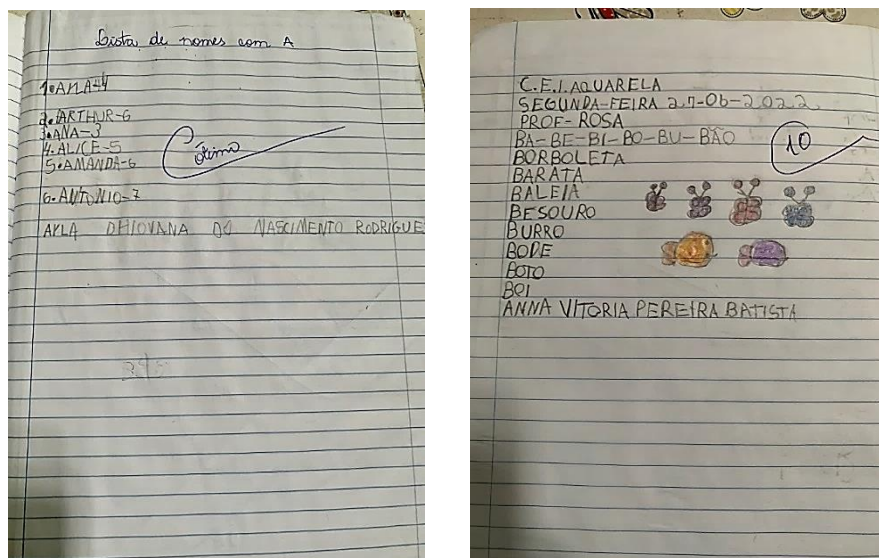 Lista de nomes com A
1. AYLA-4
2. ARTHUR-6
3. ANA-3
4. ALICE-5
5. AMANDA-6
Ótimo
6. ANTONIO-7
AYLA DHIOVANA DO NASCIMENTO RODRIGUE
C.E.I. AQUARELA
SEGUNDA-FEIRA 27-06-2022
PROF- ROSA
BA-BE-BI-BO-BU-BÃO
10
BORBOLETA
BARATA
BALEIA
BESOURO
BURRO
BODE
BOTO
BOI
ANNA VITORIA PEREIRA BATISTA